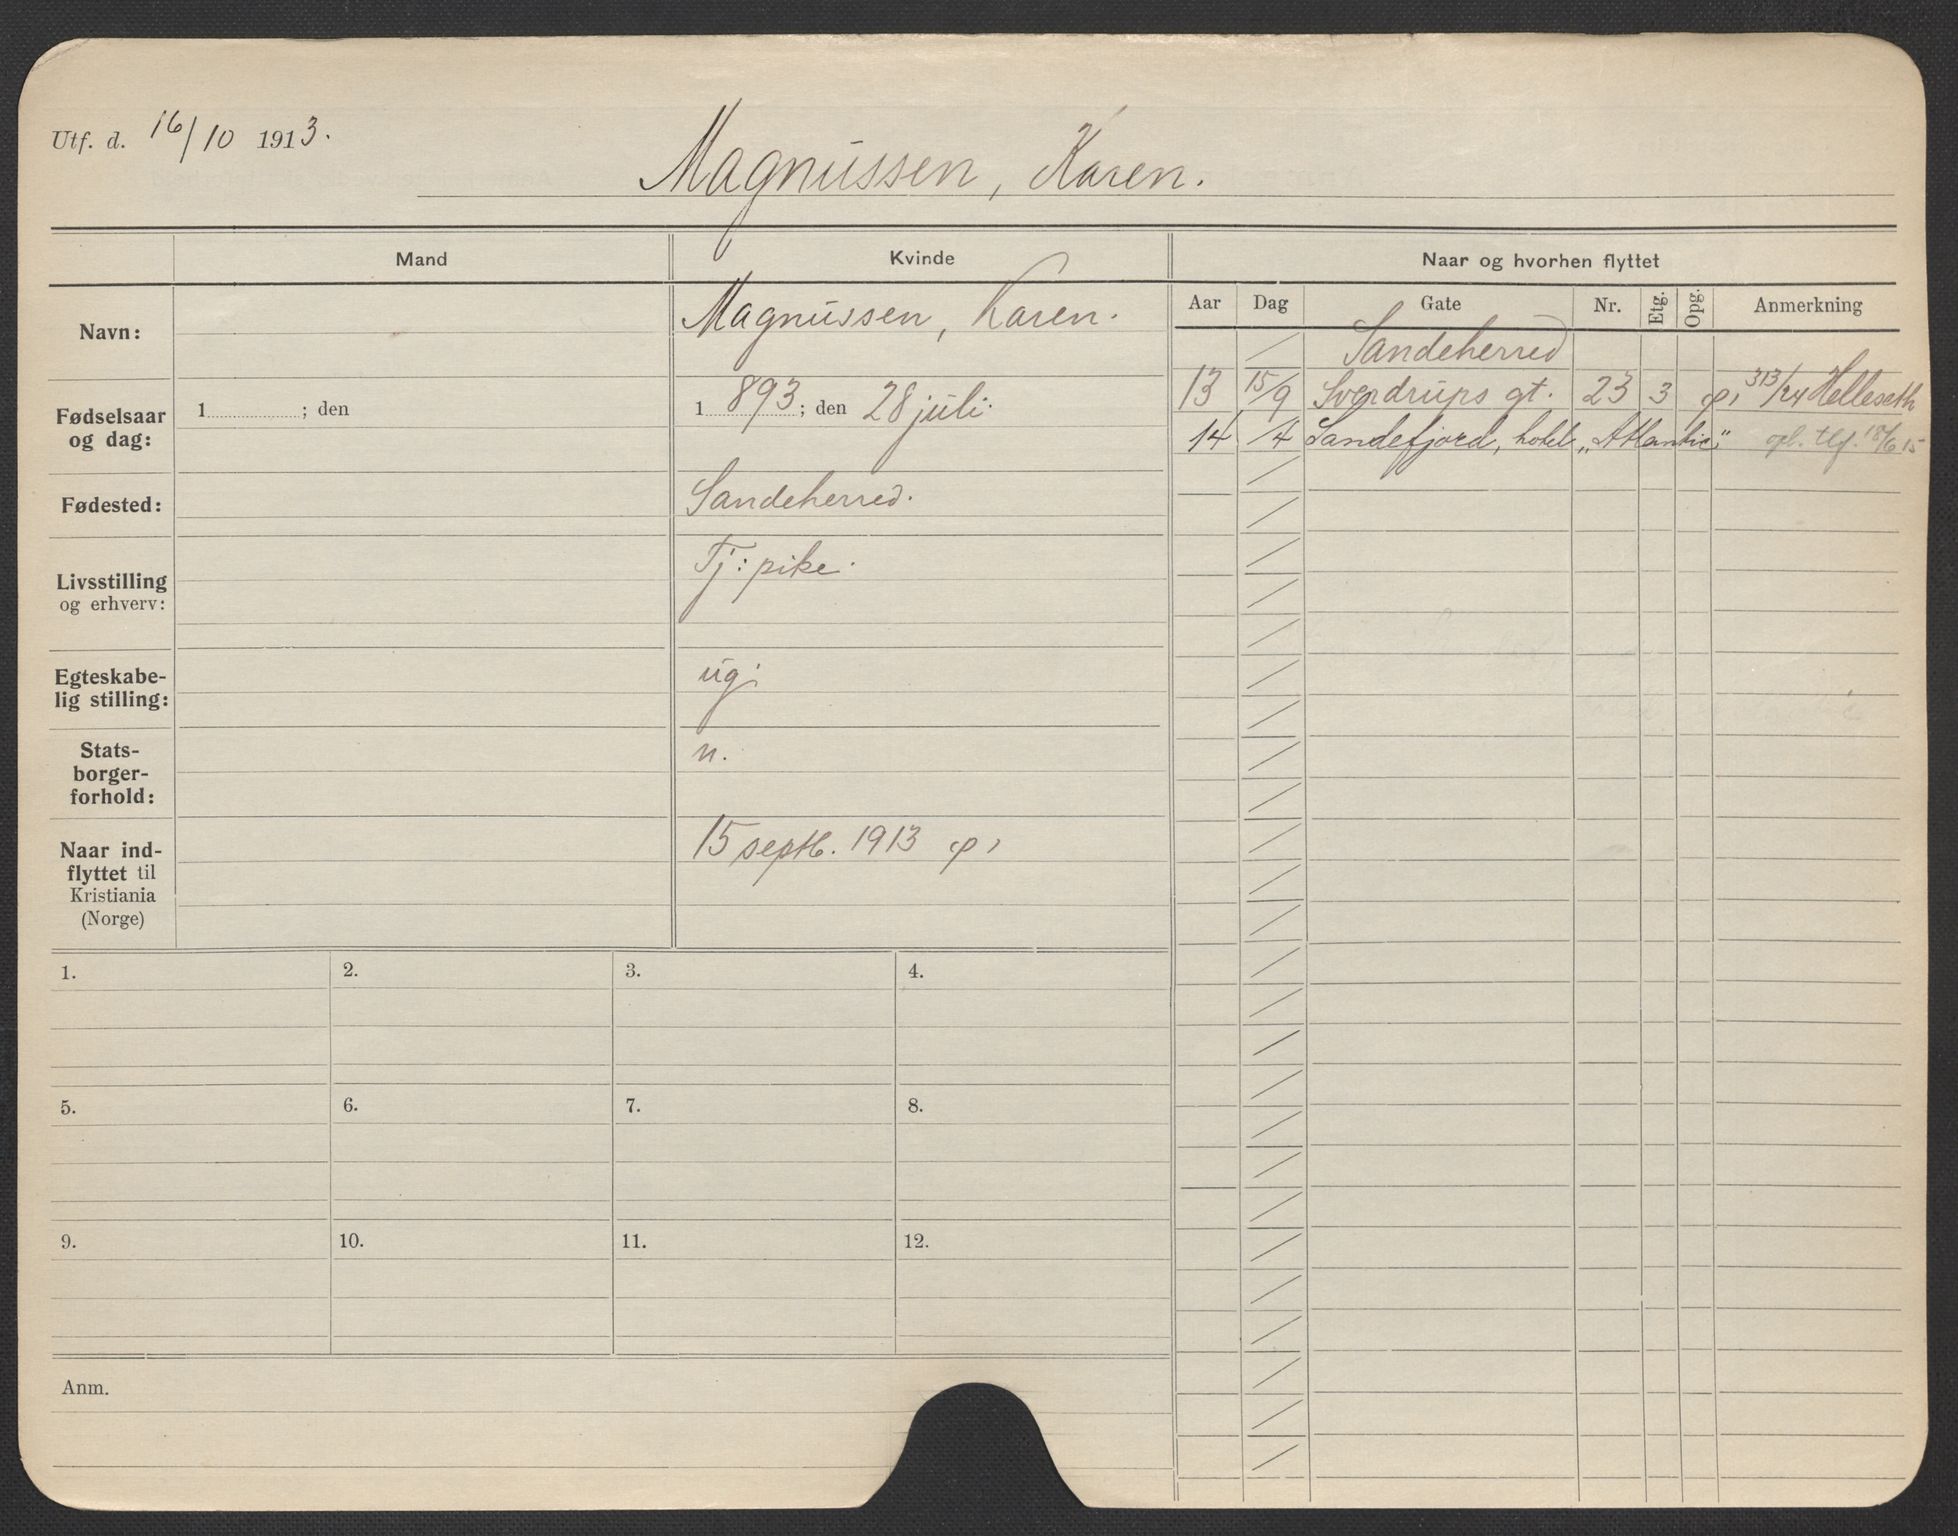 Utf. d. 16/10 1913.
Magnussen, Karen.
Mand Kvinde Naar og hvorhen flyttet
Aar Dag Gate Nr. Etg. Opg. Anmerkning
Navn: Magnussen, Karen.
Sandeherred
13 15/9 Sverdrups gt. 23 3 313/24 Helleseth
14 /4 Sandefjord, hotel „Atlantic" opl. tlf. 18/6 15
Fødselsaar
og dag:
1 ; den
1 893 ; den 28 juli.
Fødested: Sandeherred.
Livsstilling
og erhverv:
Tj: pike.
Egteskabe-
lig stilling:
ug.
Stats-
borger-
forhold:
n.
Naar ind-
flyttet til
Kristiania
(Norge)
15 septb. 1913
1. 2. 3. 4.
5. 6. 7. 8.
9. 10. 11. 12.
Anm.